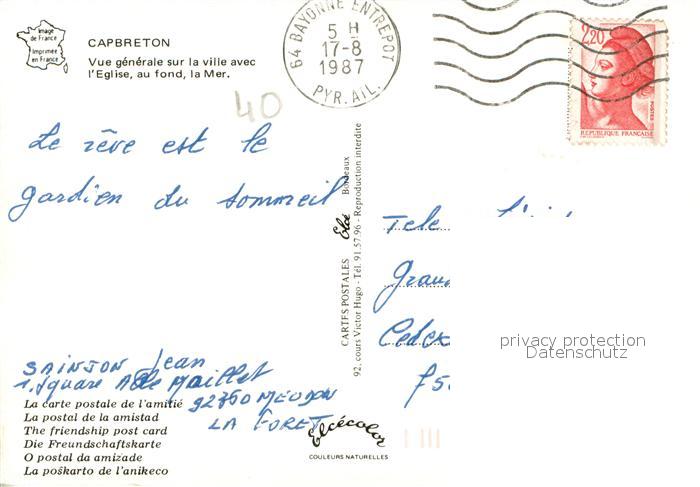 Image
de France
Imprimée
en France
CAPBRETON
Vue générale sur la ville avec
l'Eglise, au fond, la Mer.
64 BAYONNE ENTREPOT
5 H
17-8
1987
PYR. ATL.
2,20
POSTES
REPUBLIQUE FRANÇAISE
40
Le rêve est le
gardien du sommeil
CARTES POSTALES Elcé Bordeaux
92, cours Victor Hugo - Tél. 91.57.96 - Reproduction interdite
Tele
Gran
Cedex
75
privacy protection
Datenschutz
SAINJON Jean
1, square A de Maillet
92360 MEUDON
LA FORET
La carte postale de l'amitié
La postal de la amistad
The friendship post card
Die Freundschaftskarte
O postal da amizade
La poŝkarto de l'anikeco
Elcécolor
COULEURS NATURELLES